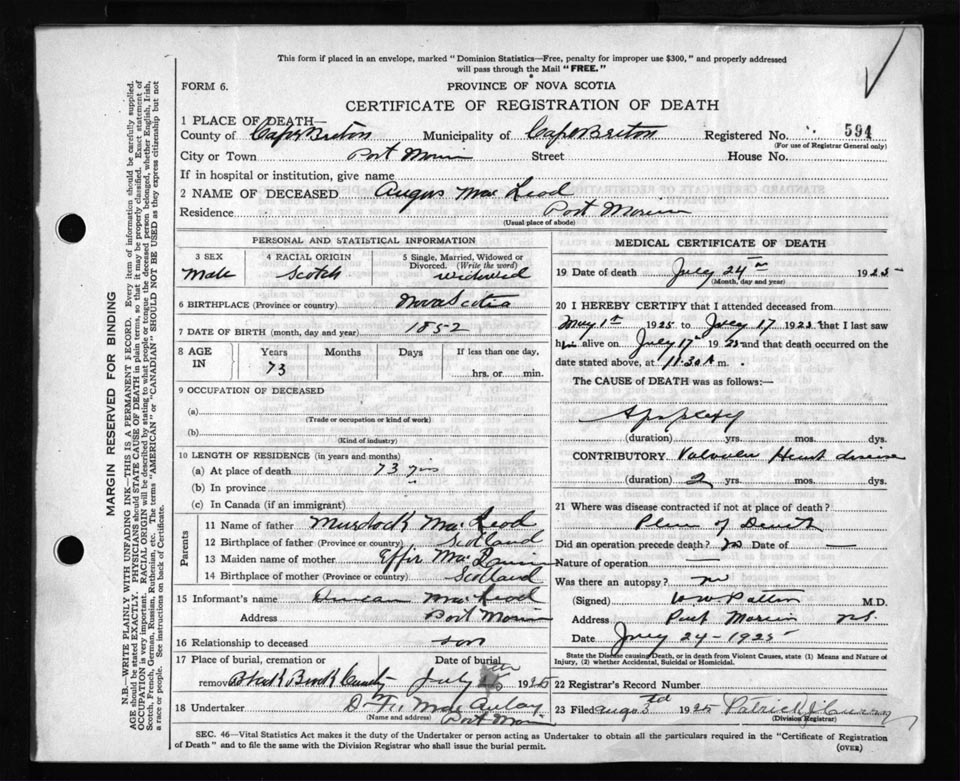 This form if placed in an envelope, marked "Dominion Statistics—Free, penalty for improper use $300," and properly addressed
will pass through the Mail "FREE."
FORM 6.
PROVINCE OF NOVA SCOTIA
CERTIFICATE OF REGISTRATION OF DEATH
1 PLACE OF DEATH—
County of Cape Breton Municipality of Cape Breton Registered No. 594
(For use of Registrar General only)
City or Town Port Morien Street House No.
If in hospital or institution, give name
2 NAME OF DECEASED Angus Mac Leod
Residence Port Morien
(Usual place of abode)
PERSONAL AND STATISTICAL INFORMATION
3 SEX
Male
4 RACIAL ORIGIN
Scotch
5 Single, Married, Widowed or
Divorced. (Write the word)
widowed
6 BIRTHPLACE (Province or country) Nova Scotia
7 DATE OF BIRTH (month, day and year) 1852
8 AGE IN
Years Months Days If less than one day,
73 hrs. or min.
9 OCCUPATION OF DECEASED
(a)
(Trade or occupation or kind of work)
(b)
(Kind of industry)
10 LENGTH OF RESIDENCE (in years and months)
(a) At place of death 73 yrs
(b) In province "
(c) In Canada (if an immigrant)
Parents
11 Name of father Murdock Mac Leod
12 Birthplace of father (Province or country) Scotland
13 Maiden name of mother Effie Mac
14 Birthplace of mother (Province or country) Scotland
15 Informant's name Duncan Mac Leod
Address Port Morien
16 Relationship to deceased son
17 Place of burial, cremation or Date of burial
removal Black Brook July 1925
18 Undertaker D. Mac Aulay
(Name and address) Port Morien
MEDICAL CERTIFICATE OF DEATH
19 Date of death July 24th 1925
(Month, day and year)
20 I HEREBY CERTIFY that I attended deceased from
May 1st 1925 to July 17 1925 that I last saw
him alive on July 17th 1925 and that death occurred on the
date stated above, at 11.30 A m.
The CAUSE of DEATH was as follows:—
Apoplexy
(duration) yrs. mos. dys.
CONTRIBUTORY Valvular Heart disease
(duration) 2 yrs. mos. dys.
21 Where was disease contracted if not at place of death?
Place of Death
Did an operation precede death? no Date of —
Nature of operation —
Was there an autopsy? no
(Signed) W W Patten M.D.
Address Port Morien N.S.
Date July 24-1925
State the Disease causing Death, or in death from Violent Causes, state (1) Means and Nature of
Injury, (2) whether Accidental, Suicidal or Homicidal.
22 Registrar's Record Number
23 Filed Aug 3rd 1925 Patrick J Curry
(Division Registrar)
SEC. 46—Vital Statistics Act makes it the duty of the Undertaker or person acting as Undertaker to obtain all the particulars required in the "Certificate of Registration
of Death" and to file the same with the Division Registrar who shall issue the burial permit.
(OVER)
MARGIN RESERVED FOR BINDING
N.B.—WRITE PLAINLY WITH UNFADING INK—THIS IS A PERMANENT RECORD. Every item of information should be carefully supplied.
AGE should be stated EXACTLY. PHYSICIANS should STATE CAUSE OF DEATH in plain terms, so that it may be properly classified. Exact statement of
OCCUPATION is very important. RACIAL ORIGIN will be described by stating to what people or tongue the deceased person belonged, whether English, Irish,
Scotch, French, German, Russian, Ruthenian, etc. The terms "AMERICAN" or "CANADIAN" SHOULD NOT BE USED as they express citizenship but not
a race or people. See instructions on back of Certificate.